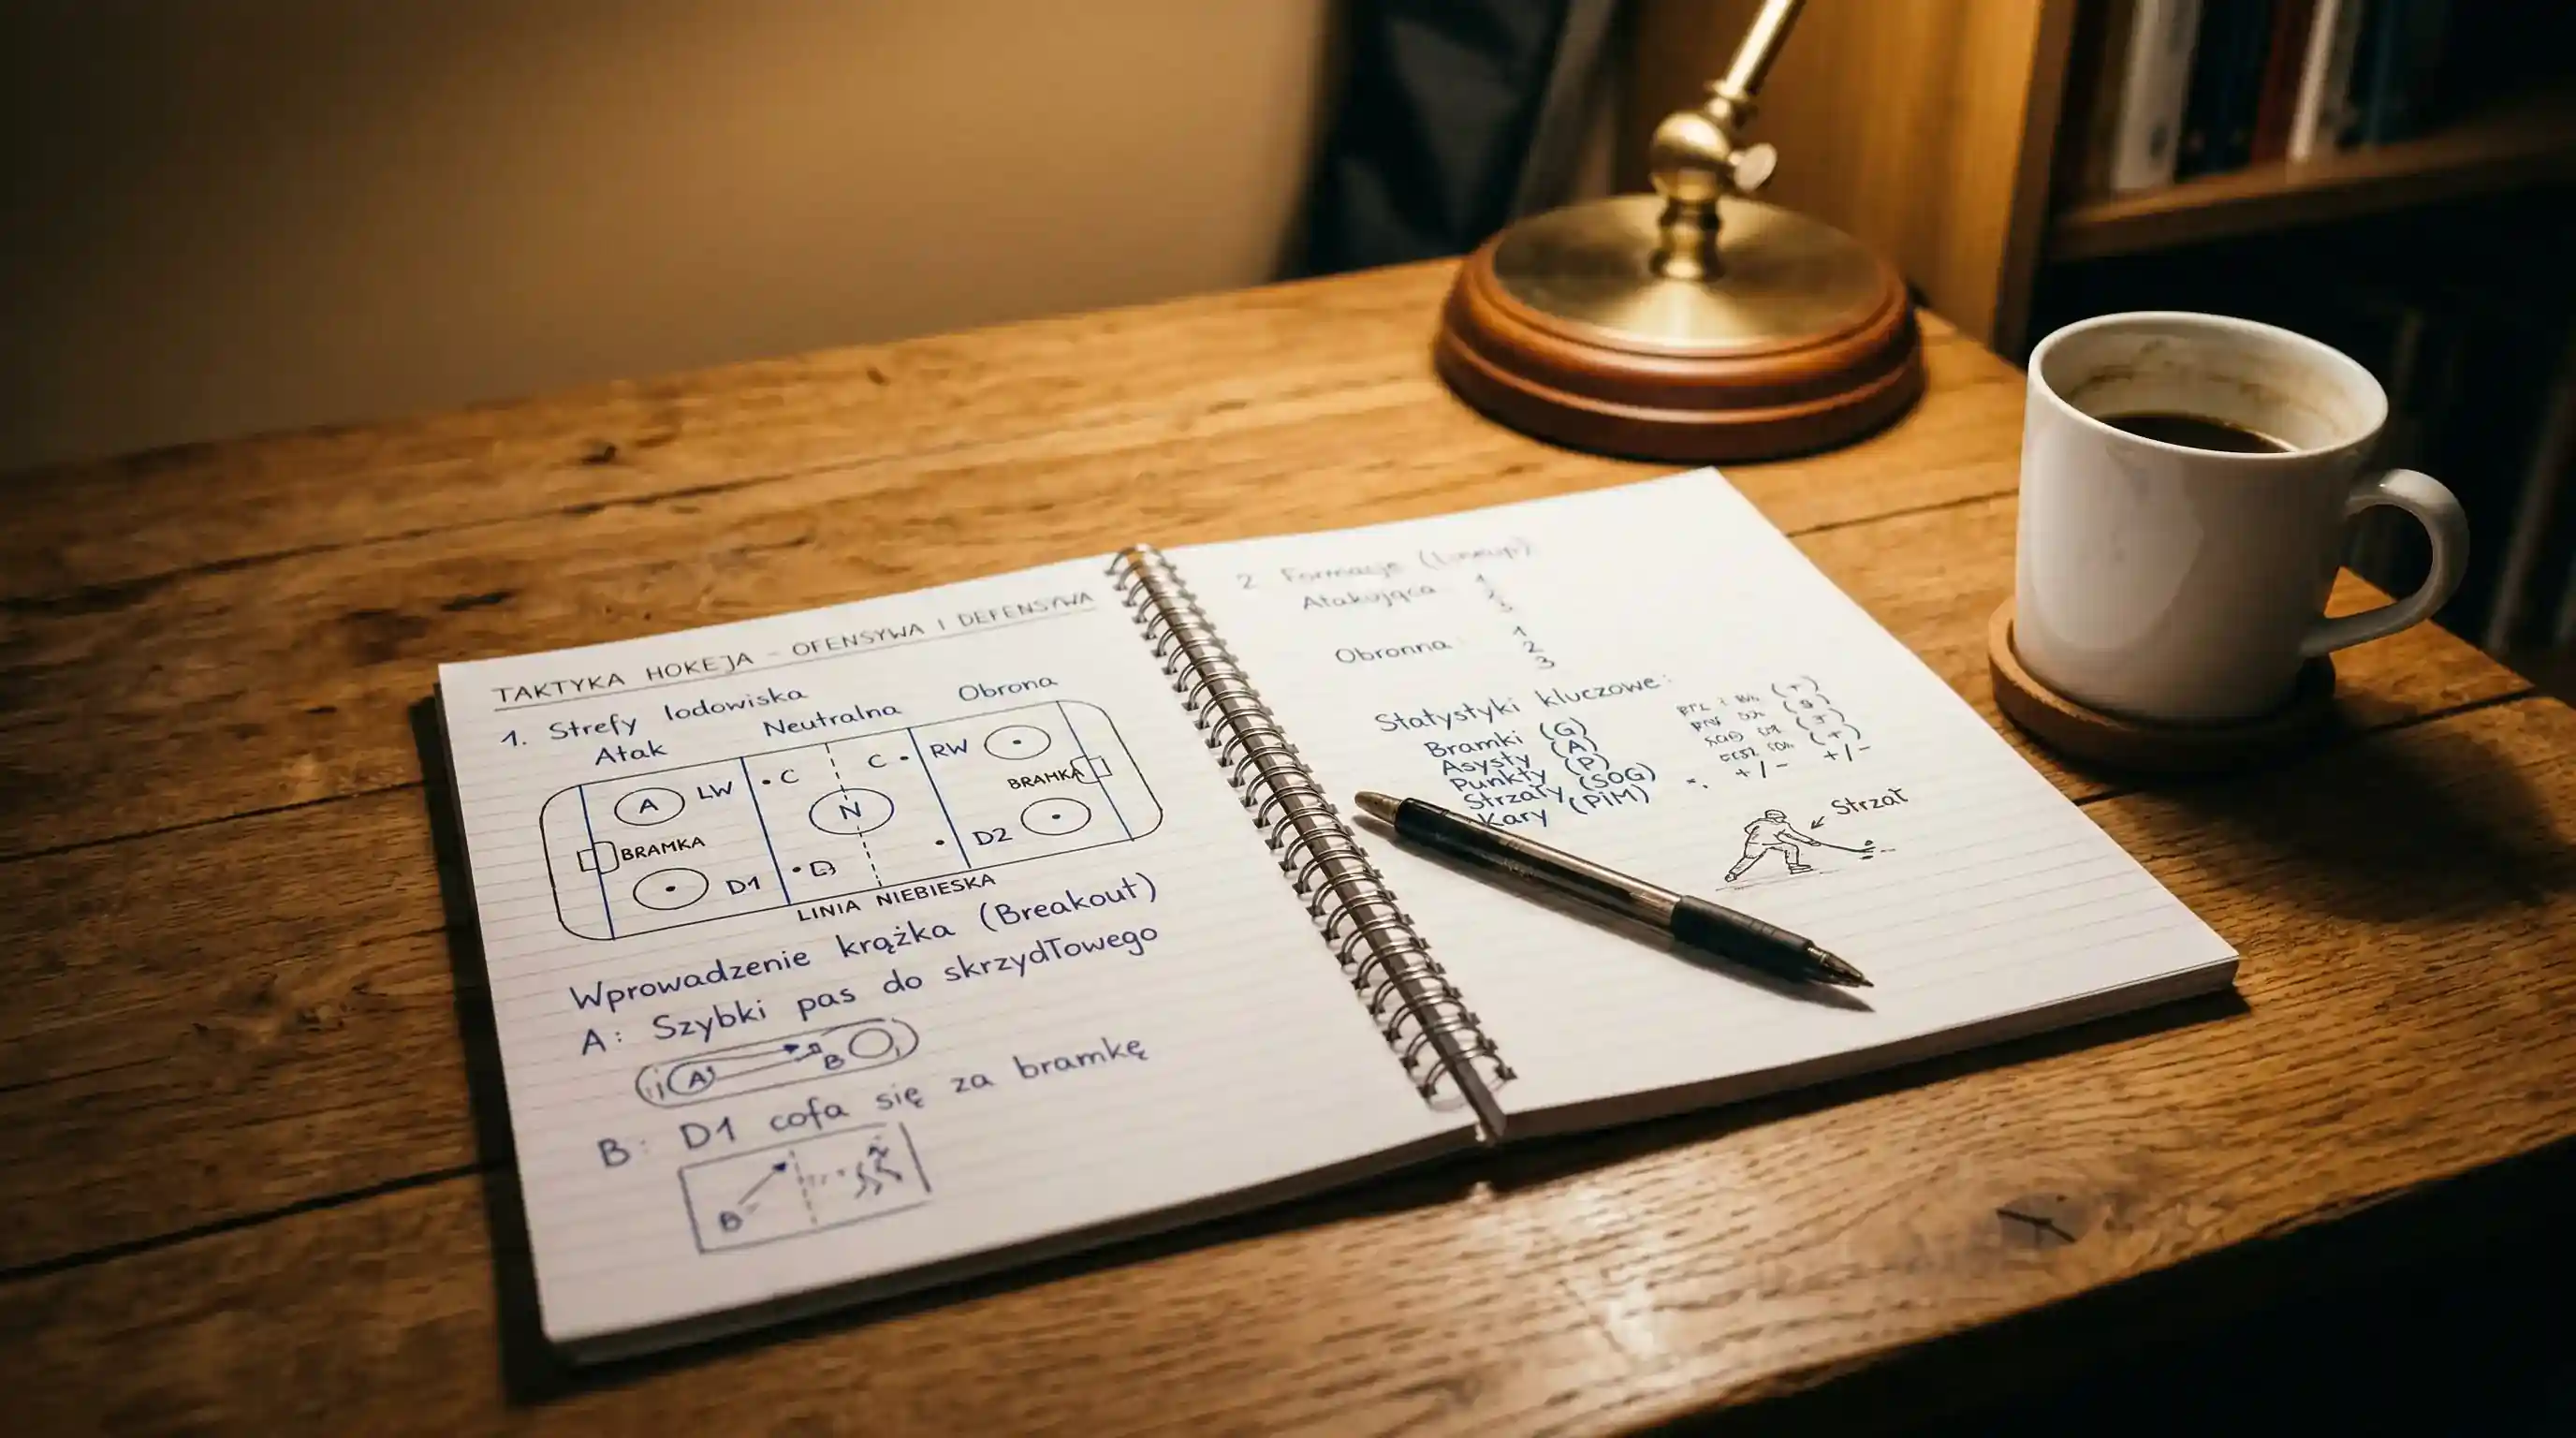 TAKTYKA HOKEJA - OFENSYWA I DEFENSYWA
1. Strefy lodowiska
Atak Neutralna Obrona
A LW C C RW
N BRAMKA
BRAMKA
D1 D2
LINIA NIEBIESKA
Wprowadzenie krążka (Breakout)
A: Szybki pas do skrzydłowego
A B
B: D1 cofa się za bramkę
B
2 Formacje
Atakująca 1
2
3
Obronna: 1
2
3
Statystyki kluczowe:
Bramki (G)
Asysty (A)
Punkty (P)
Strzały (SOG)
Kary (PiM)
+/- +/-
Strzał